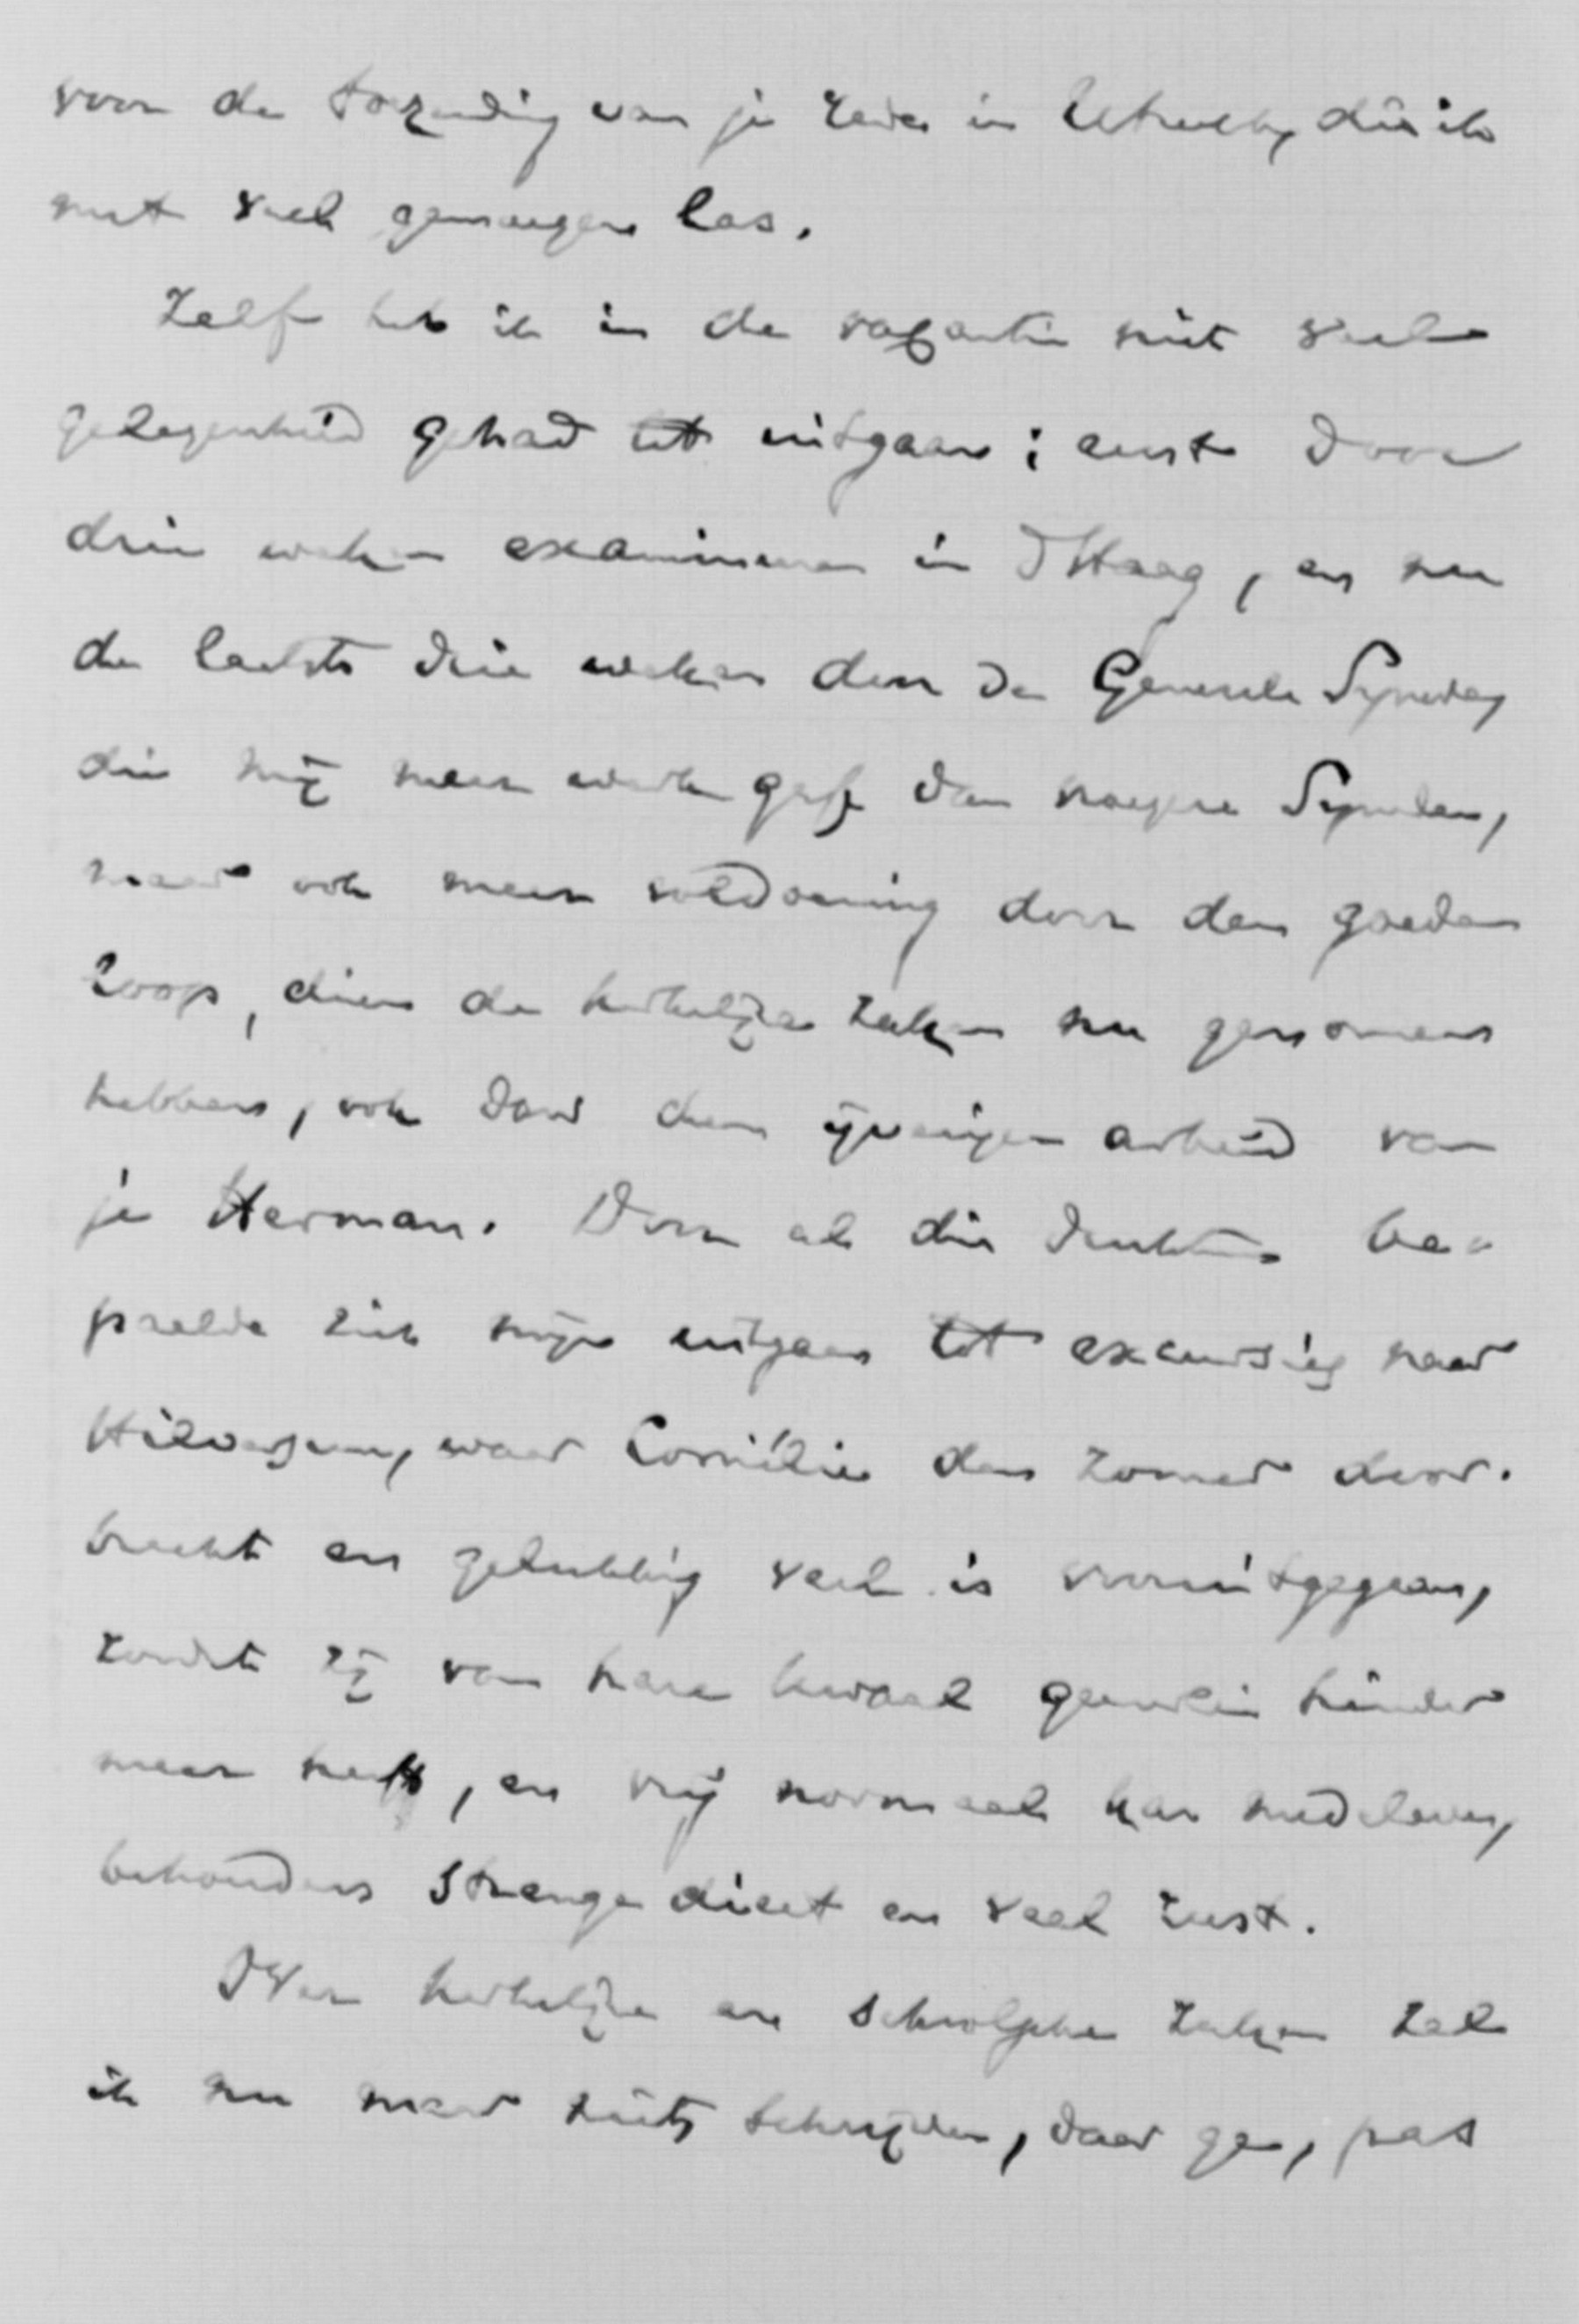 voor de toezending van je rede in Utrecht, die ik
met veel genoegen las.
Zelf heb ik in de vacantie niet veel
gelegenheid gehad tot uitgaan; eerst door
drie weken examineeren in Den Haag, en nu
de laatste drie weken door de Generale Synode,
die mij meer werk gaf, dan vroegere Synoden,
maar ook meer voldoening door den goeden
loop, dien de kerkelijke zaken nu genomen
hebben, ook door den ijverigen arbeid van
je Herman. Door al die drukte be-
paalde zich mijn uitgaan tot excursies naar
Hilversum, waar Cornélie den zomer door-
bracht en gelukkig veel is vooruitgegaan,
zoodat zij van hare kwaal geenerlei hinder
meer heeft, en vrij normaal kan medeleven,
behoudens strenge dieet en veel rust.
Over kerkelijke en schoolsche zaken zal
ik nu maar niets schrijven, daar ge, pas